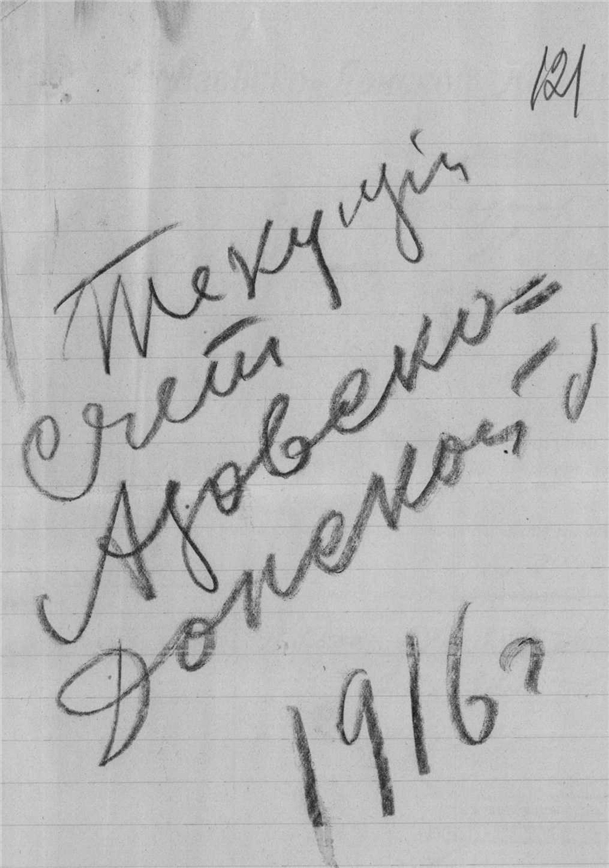 121
Текущій
счет
Азовско=
Донской
1916 г